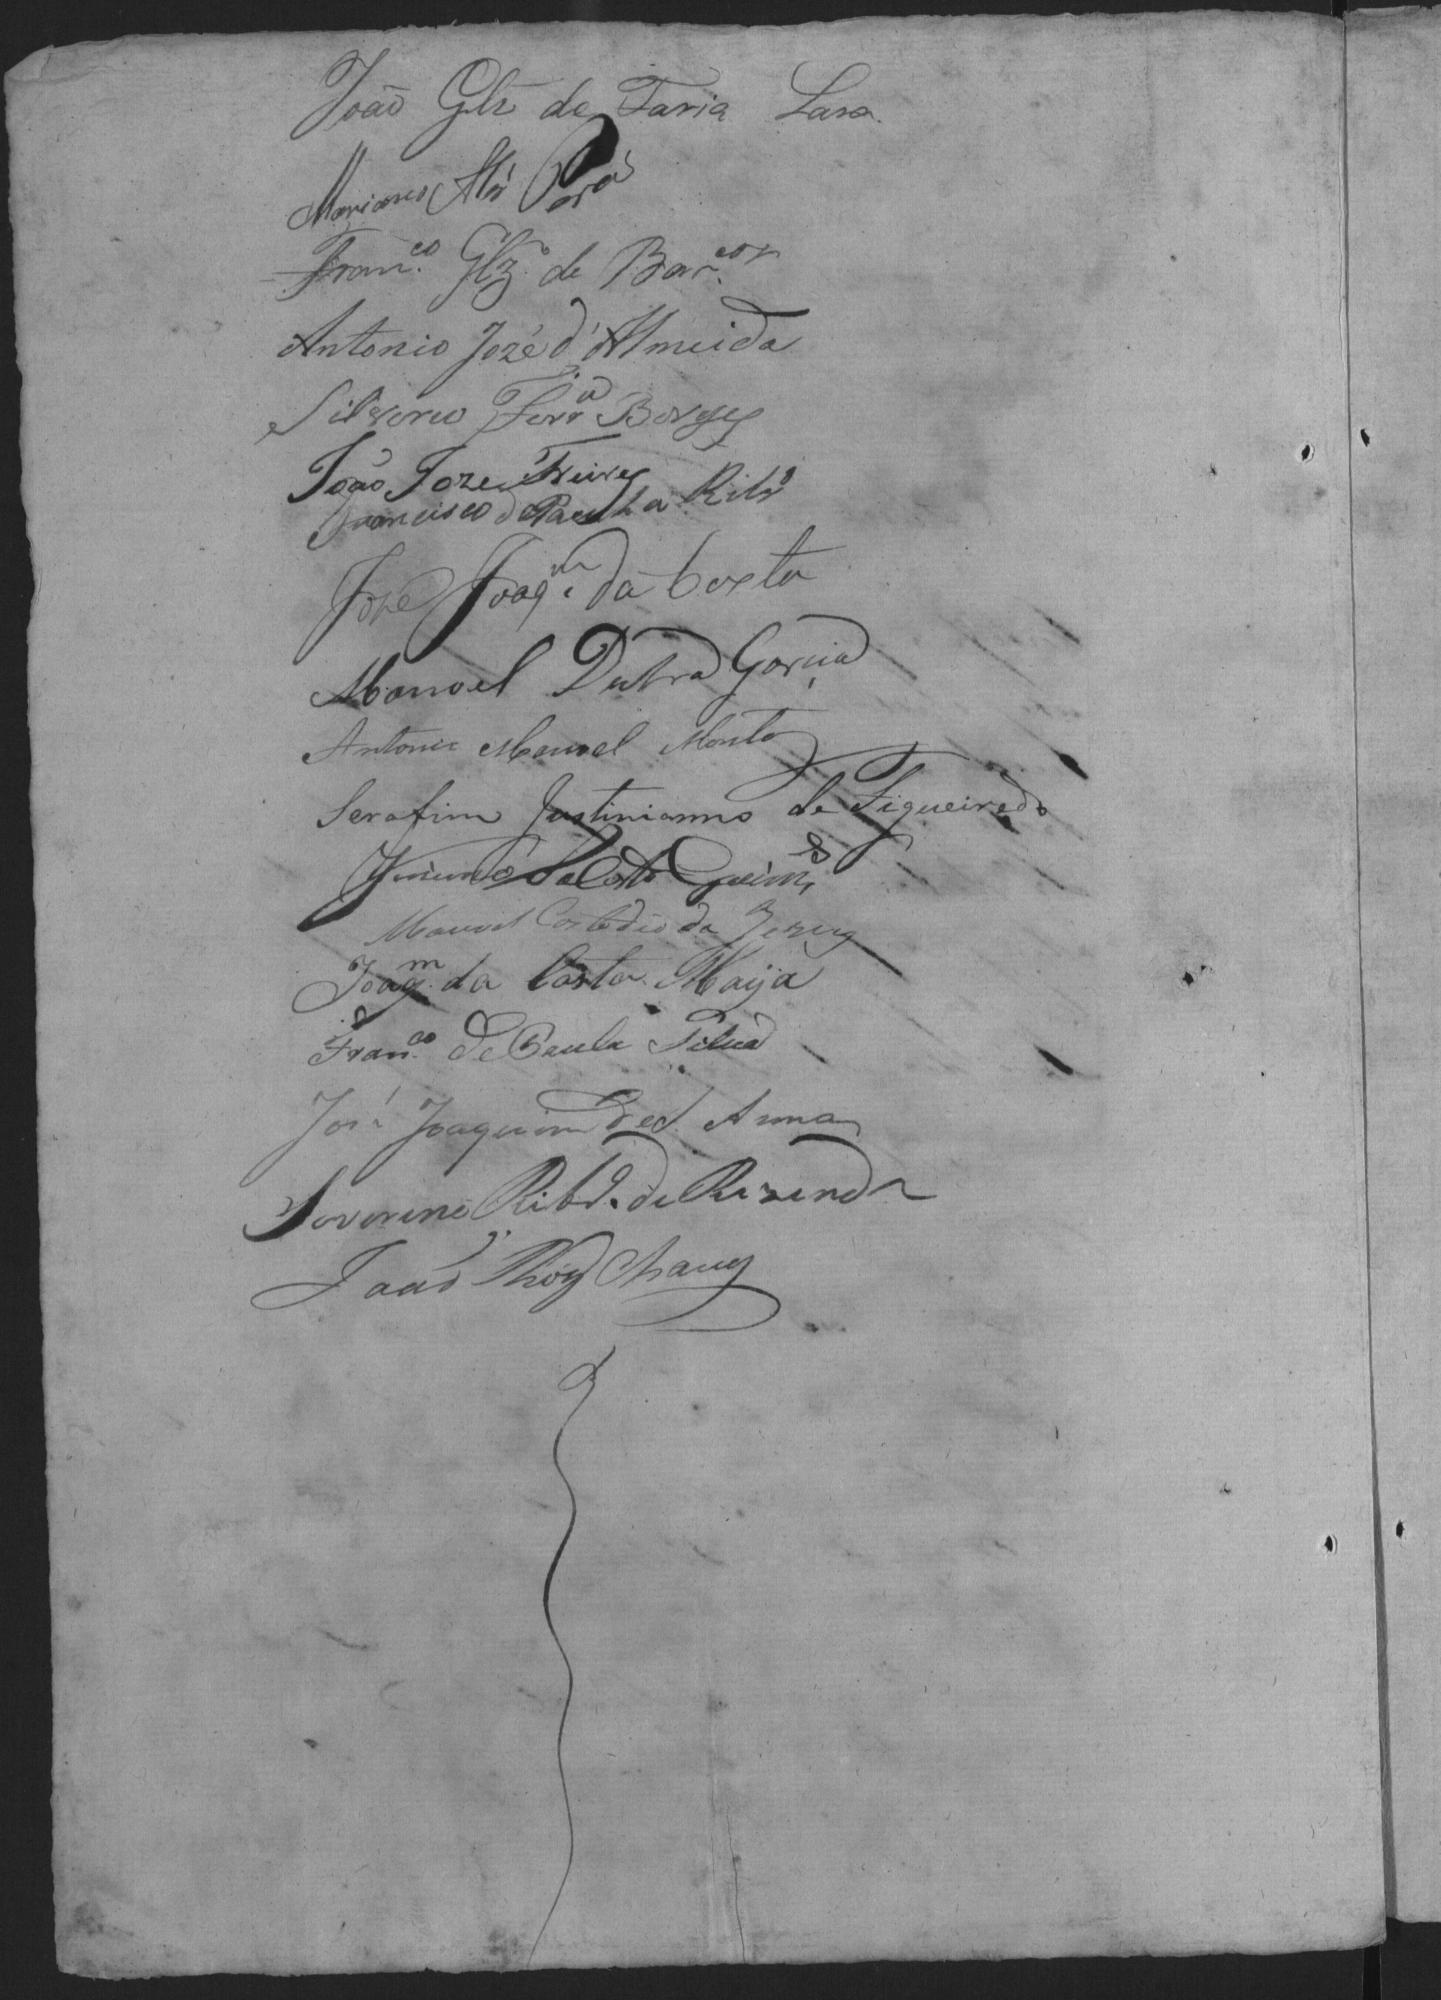 João Glz de Faria Lara
Mariano Alz
Fran.co Glz. de Bar.cos
Antonio Jozé d'Almeida
Silverio Ferra Borges
João Joze Freire
Francisco de Paula Ribro
Joze Joaq.m da Costa
Manoel Dutra Garcia
Antonio Manoel
Serafim Justinianno de Figueiredo
da Costa Guim.es
Manoel Custodio da
Joaq.m da Costa Maija
Fran.co de Paula Silva
José Joaquim de S. Anna
Severino Ribr.o de Rezende
João Chaves